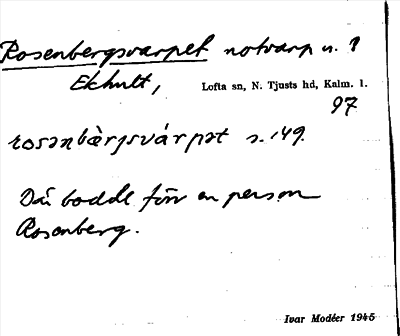 Rosenbergsvarpet notvarp n. 1
Ekhult, Lofta sn, N. Tjusts hd, Kalm. l.
97
rosənbærjsvárpət s. 149.
Där bodde förr en person
Rosenberg.
Ivar Modéer 1945